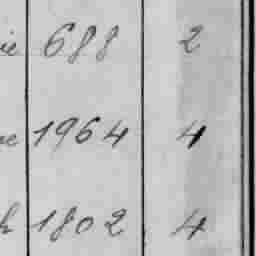 ie 688 2
1964 4
h 1802 4